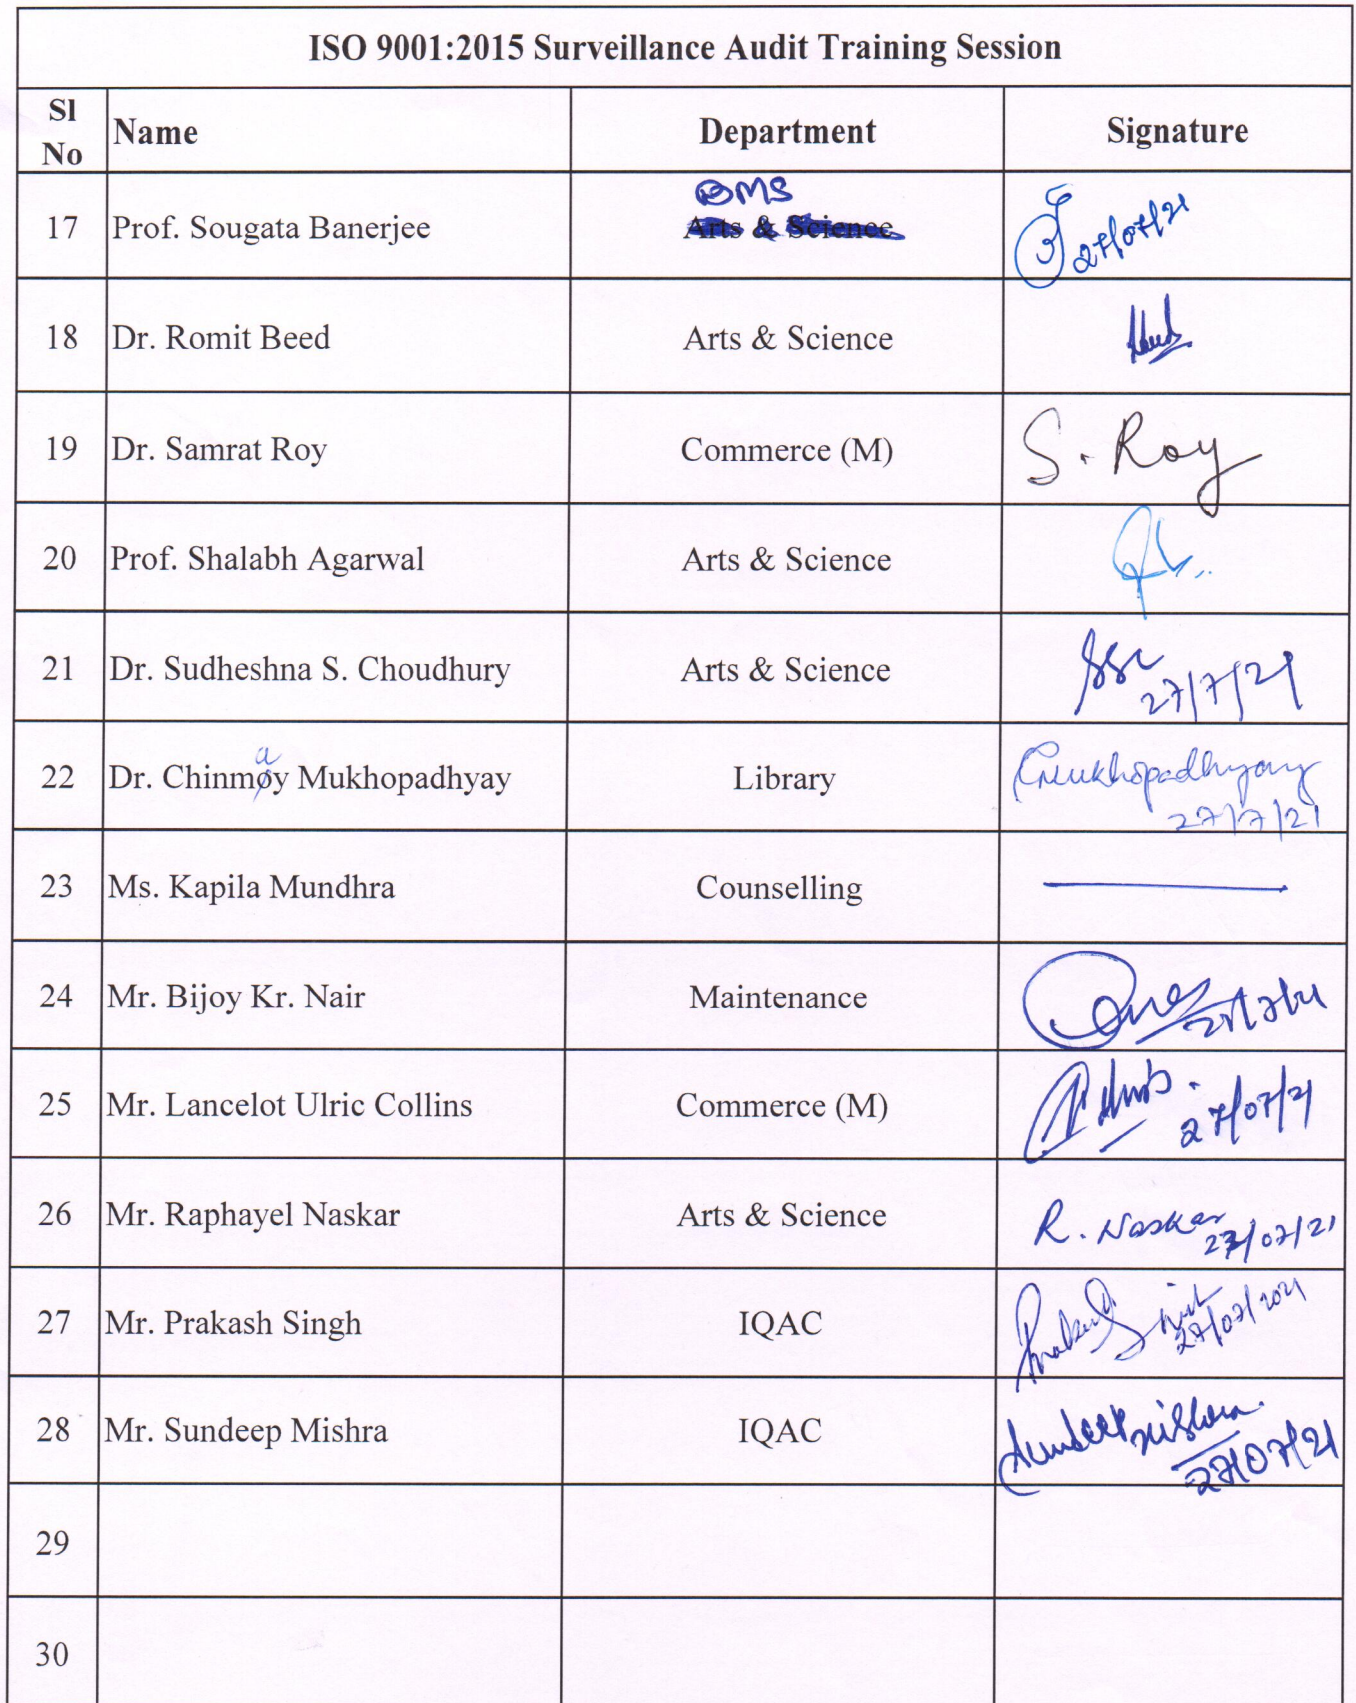 ISO 9001:2015 Surveillance Audit Training Session
Sl No Name Department Signature
BMS
17 Prof. Sougata Banerjee Arts & Science 27/07/21
18 Dr. Romit Beed Arts & Science
19 Dr. Samrat Roy Commerce (M) S. Roy
20 Prof. Shalabh Agarwal Arts & Science
21 Dr. Sudheshna S. Choudhury Arts & Science SSC
27/7/21
a
22 Dr. Chinmoy Mukhopadhyay Library CMukhopadhyay
27/7/21
23 Ms. Kapila Mundhra Counselling
24 Mr. Bijoy Kr. Nair Maintenance
25 Mr. Lancelot Ulric Collins Commerce (M) 27/07/21
26 Mr. Raphayel Naskar Arts & Science R. Naskar
27/07/21
27 Mr. Prakash Singh IQAC Prakash Singh
27/07/2021
28 Mr. Sundeep Mishra IQAC Sundeep Mishra
27/07/21
29
30